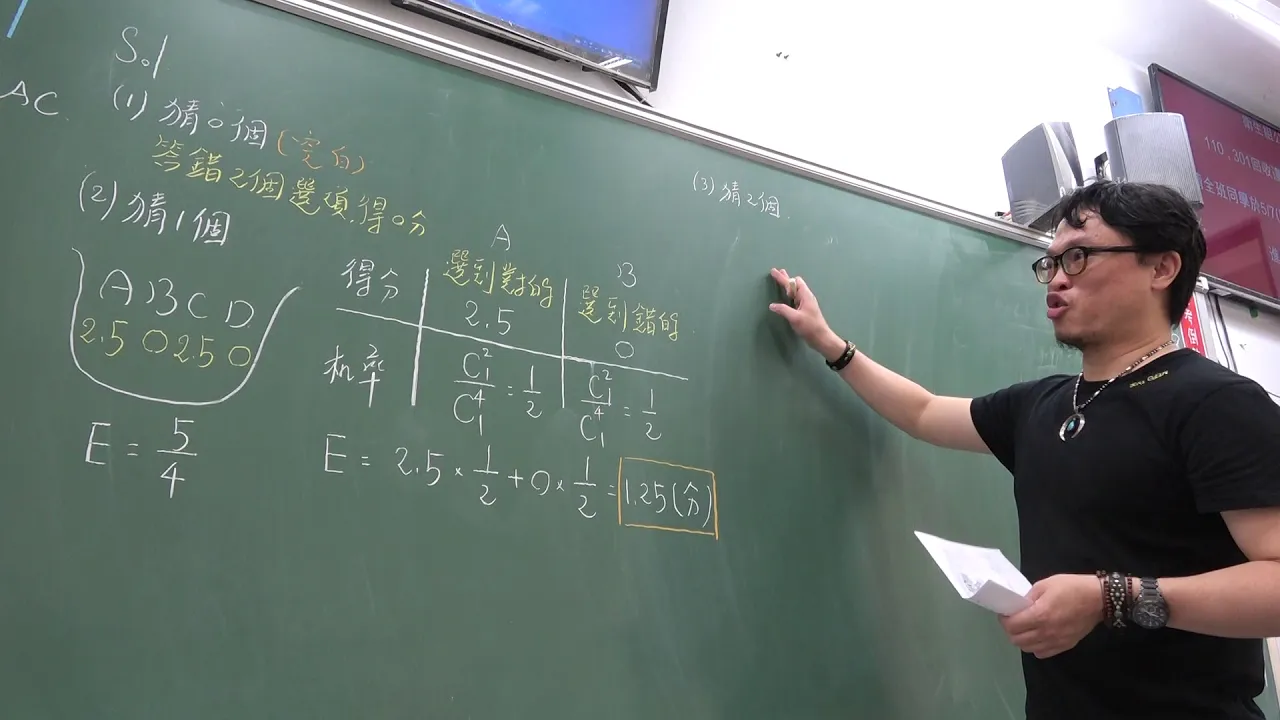 Sol
AC.
(1) 猜0個(空白)
答錯2個選項.得0分
(2) 猜1個
A B C D
2.5 0 2.5 0
E = 5/4
得分
機率
A
選到對的
2.5
C²₁/C⁴₁ = 1/2
B
選到錯的.
0
C²₁/C⁴₁ = 1/2
E = 2.5 × 1/2 + 0 × 1/2 = 1.25(分)
(3) 猜2個.
110、301
全班同學於5/7